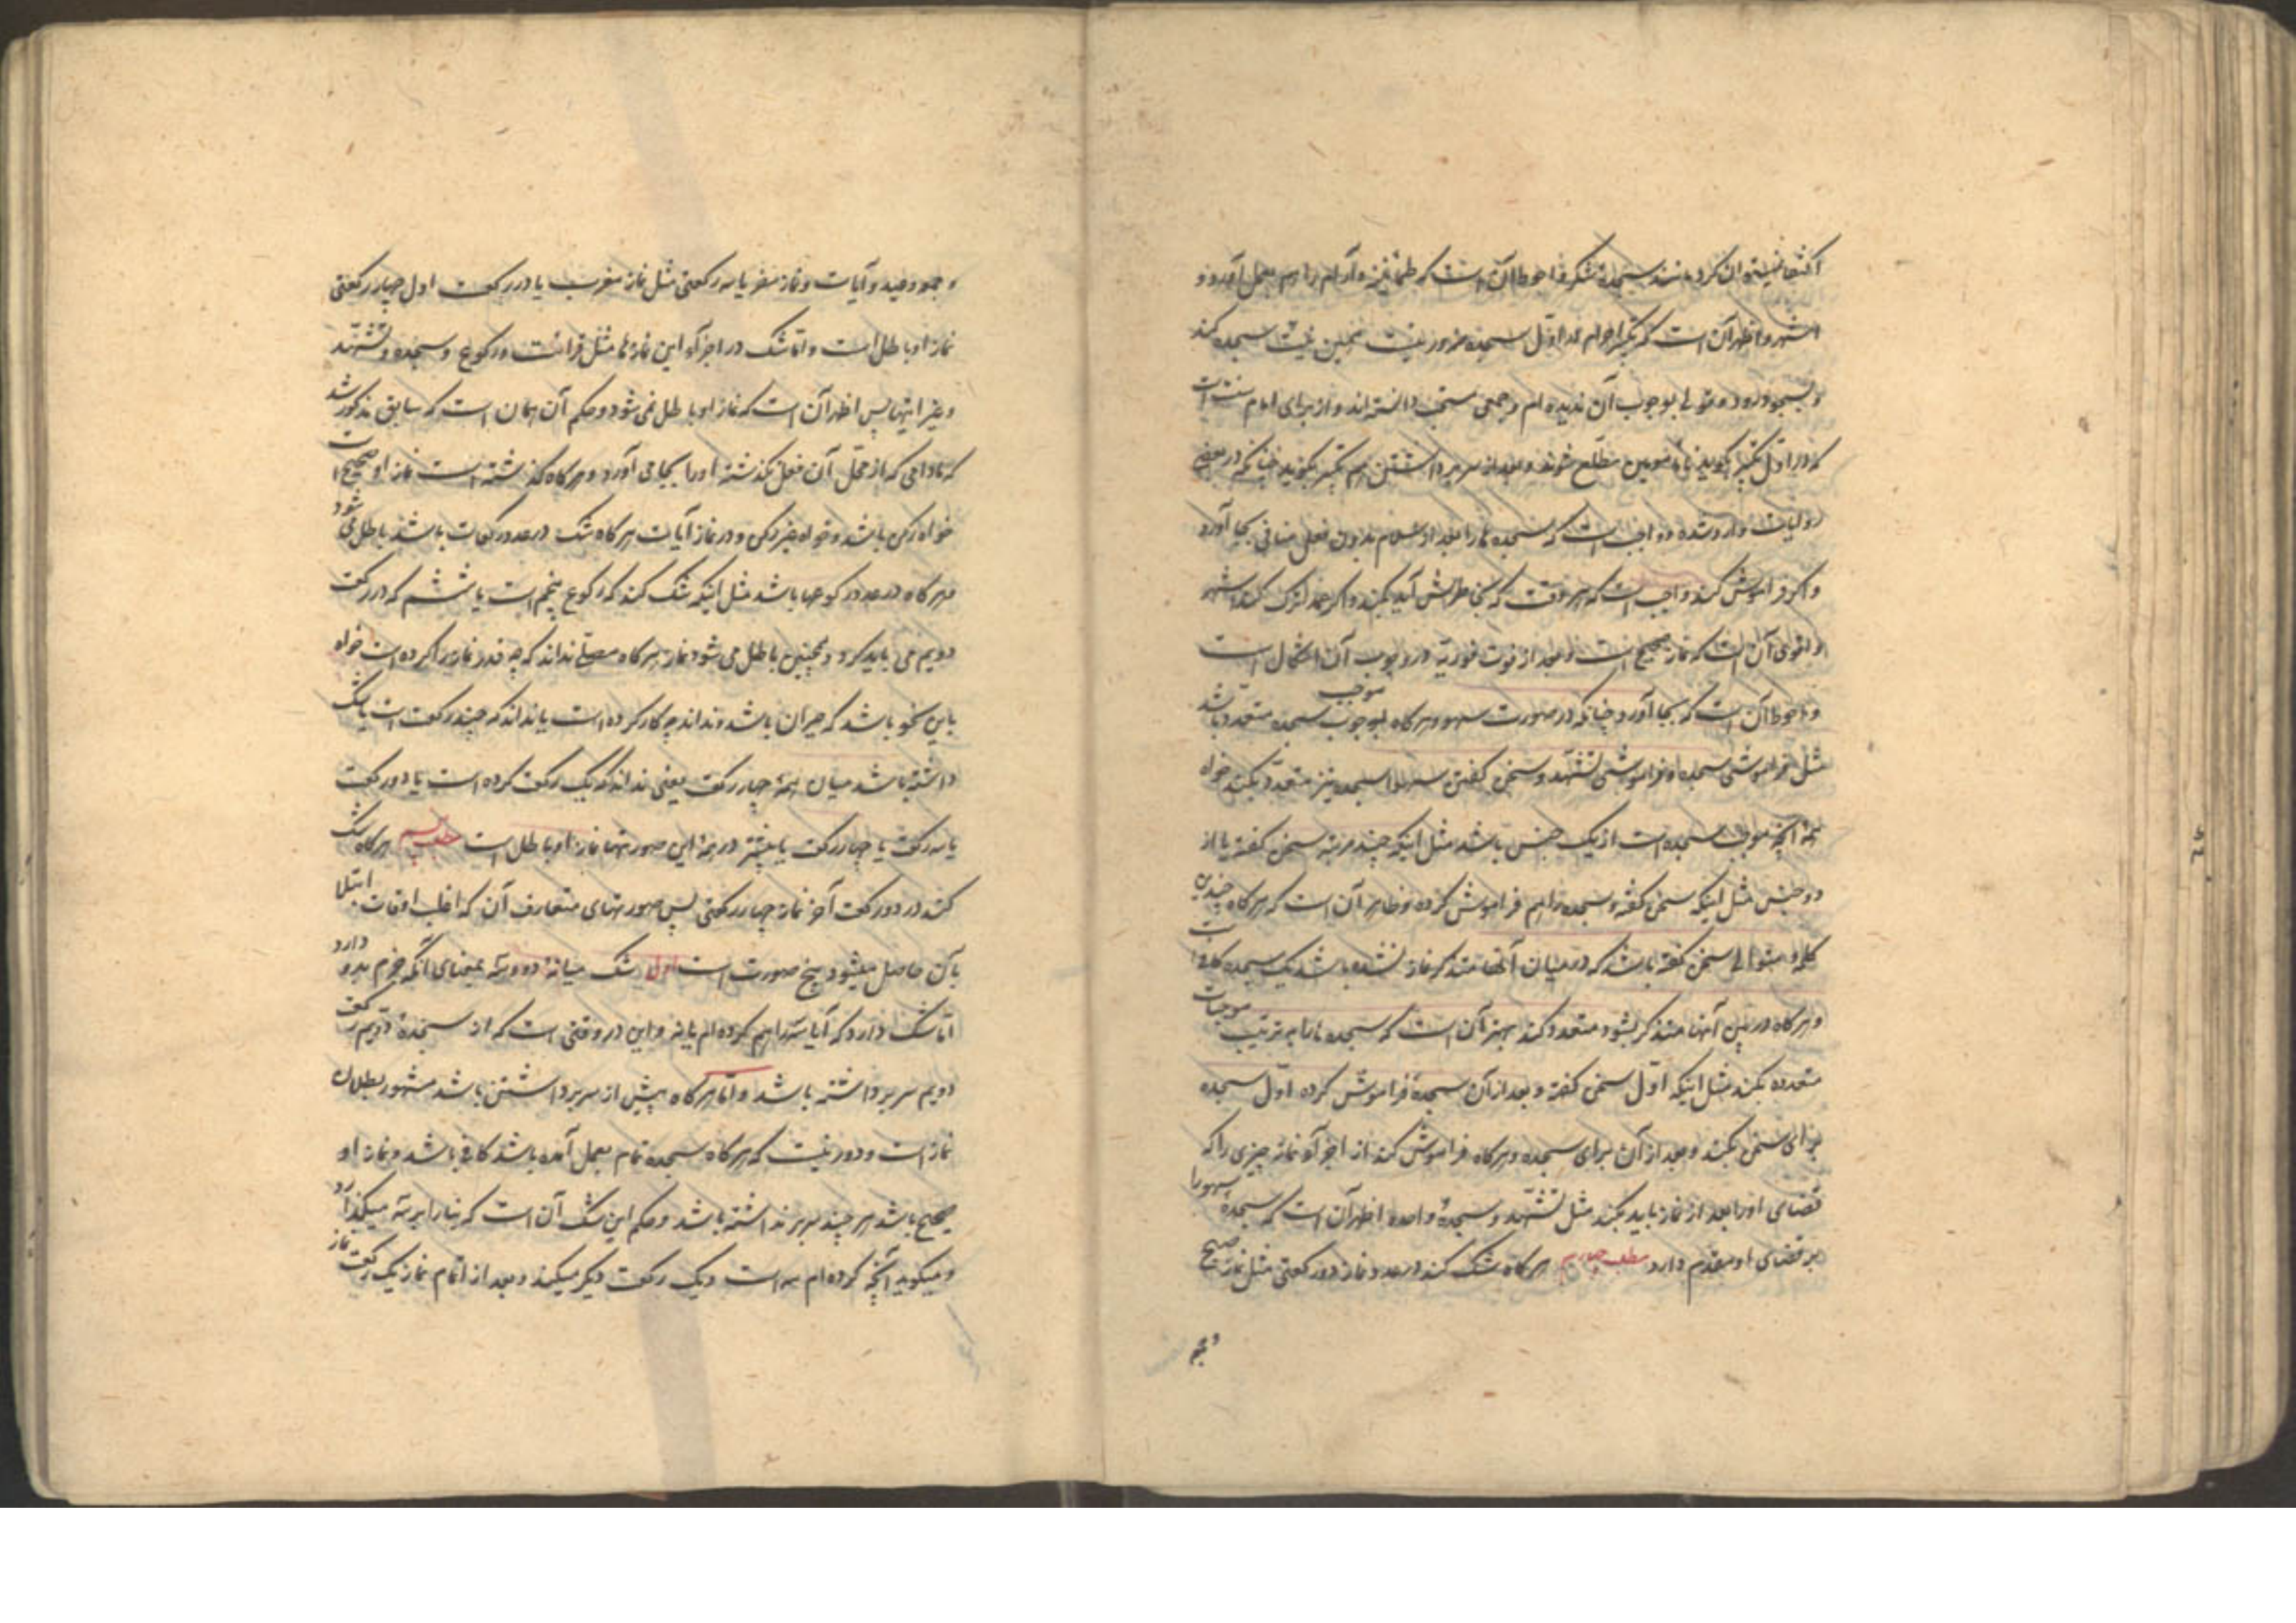 اکتفا نمیتوان کرد مانند سجدهٔ شکر و احوط آن است که طمأنینه و آرام را هم بعمل آورد و
اشهر و اظهر آن است که تکبیر احرام در اوّل سجده ضرور نیست همین نیت سجده کند
و بسجود رود و قولی بوجوب آن ندیده‌ام و جمعی مستحب دانسته‌اند و از برای امام سنت است
که در اوّل تکبیر بگوید تا مأمومین مطّلع شوند و بعد از سر برداشتن هم تکبیر بگوید چنانکه در بعضی
روایات وارد شده و واجب است که سجده‌ها را بعد از سلام بدون فعل منافی بجا آورد
و اگر فراموش کند واجب است که هر وقت که بخاطرش آید بکند و اگر عمداً ترک کند اشهر
و اقوی آن است که نماز صحیح است و بعد از فوت فوریّه در وجوب آن اشکال است
و احوط آن است که بجا آورد چنانکه در صورت سهو و هرگاه موجب سجده متعدد باشد
مثل فراموشی سجده و فراموشی تشهد و سخن گفتن سهواً سجده نیز متعدّد بکند خواه
همهٔ آنچه موجب سجده است از یک جنس باشد مثل اینکه چند مرتبه سخن گفته یا از
دو جنس مثل اینکه سخن گفته و سجده را هم فراموش کرده و ظاهر آن است که هرگاه چندین
کلمه متوالی سخن گفته باشد که در میان آنها متذکر نماز نشده باشد یک سجده کافی است
و هرگاه در بین آنها متذکر بشود متعدد کند بهتر آن است که سجده‌ها را به ترتیب موجبات
متعدده بکند مثل اینکه اوّل سخن گفته و بعد از آن سجدهٔ فراموش کرده اوّل سجده
برای سخن بکند و بعد از آن برای سجده و هرگاه فراموش کند از اجزآء نماز چیزی را که
قضای او را بعد از نماز باید بکند مثل تشهّد و سجدهٔ واحده اظهر آن است که سجدهٔ سهو را
بر قضای او مقدم دارد مطلب چهارم هرگاه شک کند در عدد نماز دو رکعتی مثل نماز صبح
و جمعه
و جمعه و عید و آیات و نماز سفر یا سه رکعتی مثل نماز مغرب یا در رکعت اول چهار رکعتی
نماز او باطل است و امّا شک در اجزآء این نمازها مثل قرائت و رکوع و سجده و تشهّد
و غیر اینها پس اظهر آن است که نماز او باطل نمی‌شود و حکم آن همان است که سابق مذکور شد
که مادامی که از محلّ آن فعل نگذشته او را بجا می آورد و هرگاه گذشته است نماز او صحیح است
خواه رکن باشد و خواه غیر رکن و در نماز آیات هرگاه شک در عدد رکعات باشد باطل می شود
هرگاه در عدد رکوعها باشد مثل اینکه شک کند که رکوع پنجم است یا ششم که در رکعت
دویم می باید کرد و همچنین باطل می شود نماز هرگاه مصلّی نداند که چه قدر نماز را کرده است خواه
باین نحو باشد که حیران باشد و نداند چه کار کرده است یا نداند که چند رکعت است یا شک
داشته باشد میان همهٔ چهار رکعت یعنی نداند که یک رکعت کرده است یا دو رکعت
یا سه رکعت یا چهار رکعت یا بیشتر در همهٔ این صورتها نماز او باطل است مطلب پنجم هرگاه شک
کند در دو رکعت آخر نماز چهار رکعتی پس صورتهای متعارف آن که اغلب اوقات ابتلا
بآن حاصل میشود پنج صورت است اول شک میانهٔ دو و سه بمعنای آنکه جزم بدو دارد
امّا شک دارد که آیا سه را هم کرده‌ام یا نه و این در وقتی است که از سجدهٔ دویم رکعت
دویم سر برداشته باشد و امّا هرگاه پیش از سر برداشتن باشد مشهور بطلان
نماز است و دور نیست که هرگاه سجده تمام بعمل آمده باشد کافی باشد و نماز او
صحیح باشد هر چند سر برنداشته باشد و حکم این شک آن است که بنا را بر سه میگذارد
و میگوید آنچه کرده‌ام سه است و یک رکعت دیگر میکند و بعد از اتمام نماز یک رکعت نماز